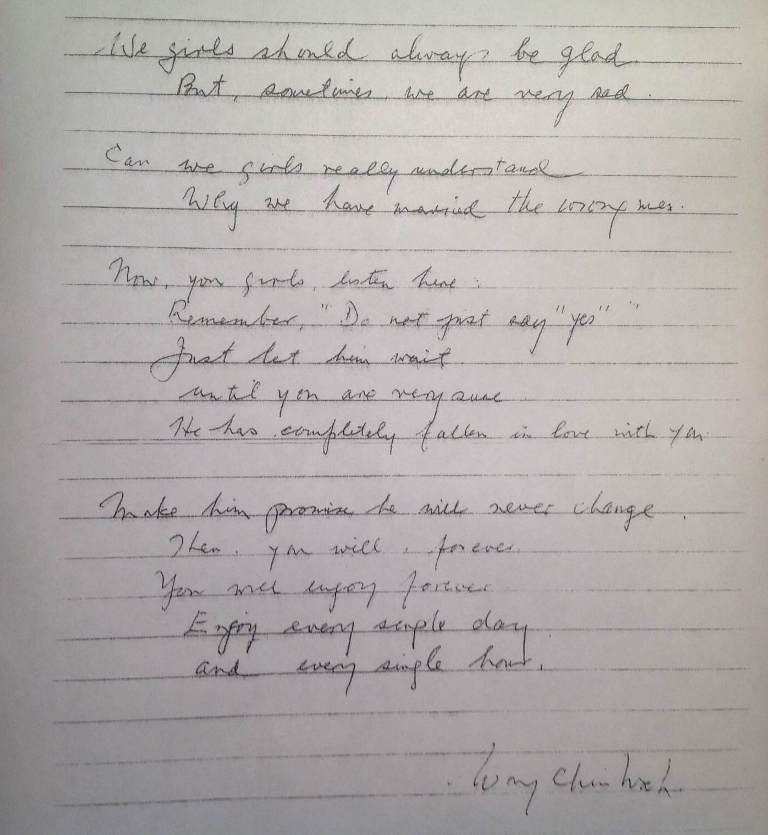 We girls should always be glad.
But, sometimes, we are very sad.
Can we girls really understand
Why we have married the wrong men.
Now, you girls, listen here :
Remember, "Do not just say "yes" "
Just let him wait
until you are very sure
He has completely fallen in love with you
Make him promise he will never change.
Then, you will, forever
You will enjoy forever
Enjoy every single day
and every single hour.
Wong Chin